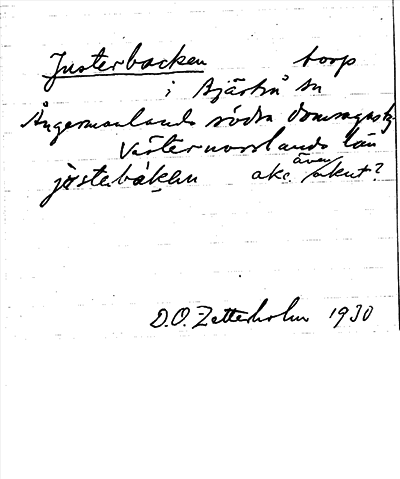 Justerbacken torp
i Bjärtrå sn
Ångermanlands södra domsagas tg
Västernorrlands län
jɵsterbàkən akc. även akut?
D.O. Zetterholm 1930